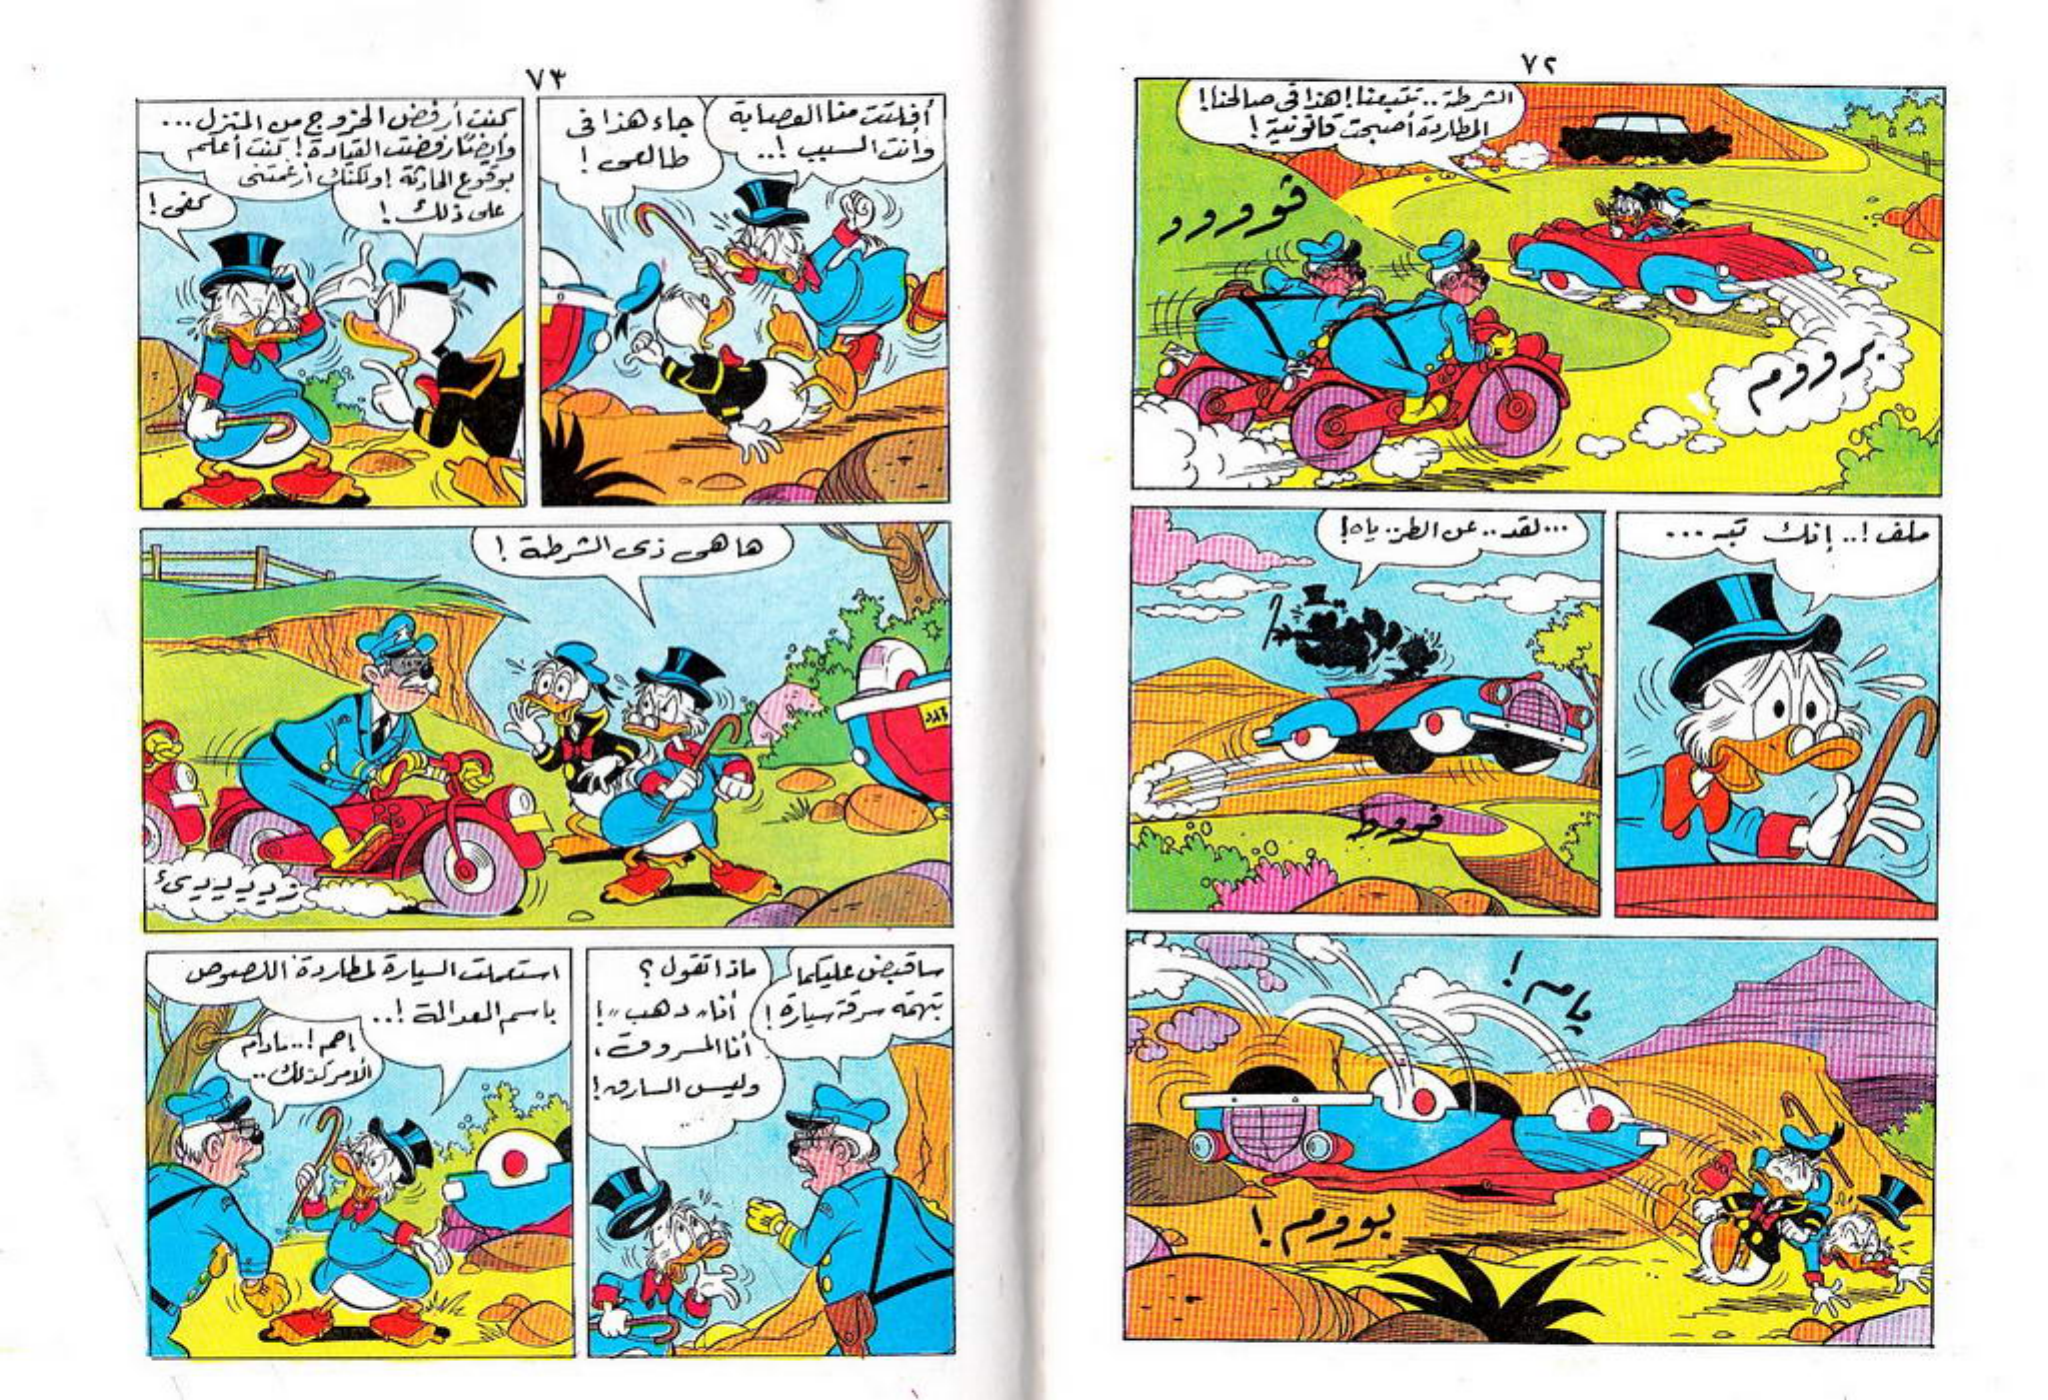 ٧٢
الشرطة.. تتبعنا! هذا في صالحنا!
المطاردة أصبحت قانونية!
ڤوورور
برووم
ملف!.. إنك تبـ...
...تقد.. عن الطر.. ياه!
ڤووط
يامم!
بووم!
٧٣
أفلتت منا العصابة
وأنت السبب!..
جاء هذا في
طالعى!
كنت أرفض الخروج من المنزل...
وأيضًا رفضت القيادة! كنت أعلم
بوقوع الحادثة! ولكنك أرغمتنى
على ذلك!
كفى!
ها هى ذى الشرطة!
سأقبض عليكما
بتهمة سرقة سيارة!
ماذا تقول؟
أنا "دهب"!
أنا المسروق،
وليس السارق!
...
استعملت السيارة لمطاردة اللصوص
باسم العدالة!..
إحم!.. مادام
الأمر كذلك..